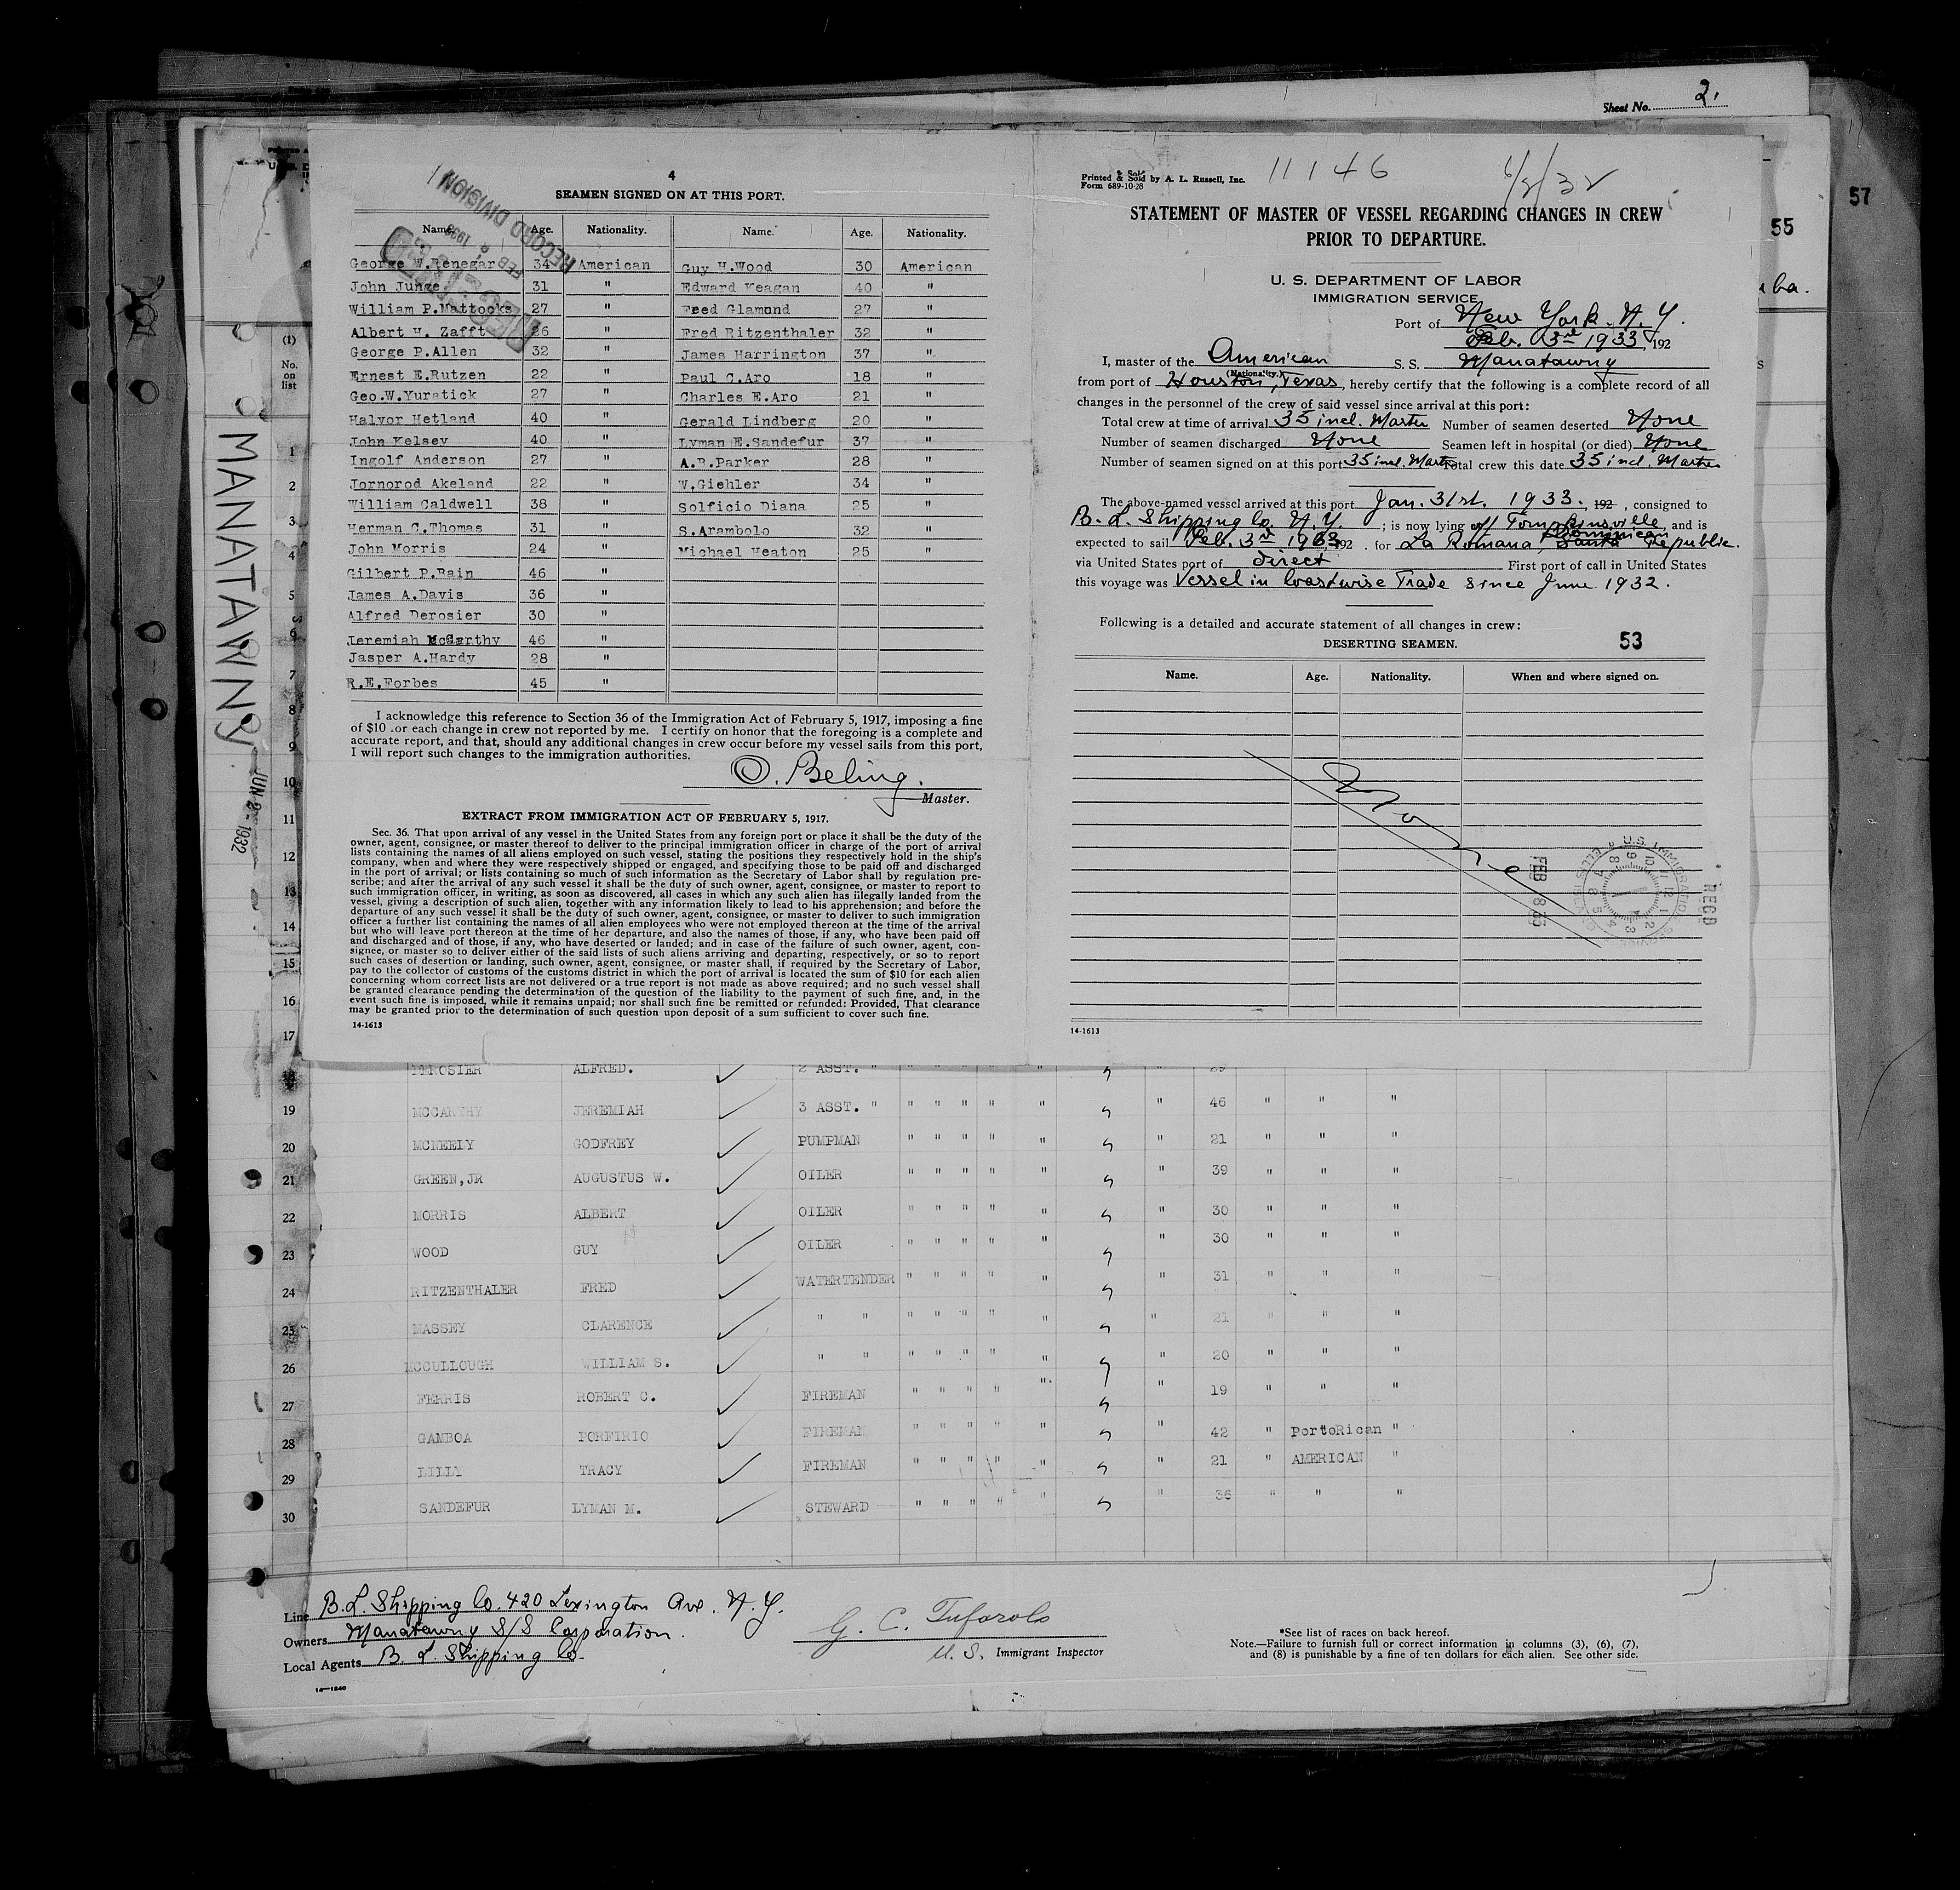 Sheet No. 2.
57
55
uba.
4
SEAMEN SIGNED ON AT THIS PORT.
Name. Age. Nationality. Name. Age. Nationality.
George W.Renegar 34 American Guy H.Wood 30 American
John Junge 31 " Edward Keagan 40 "
William P.Mattocks 27 " Fred Glamond 27 "
Albert H. Zafft 26 " Fred Ritzenthaler 32 "
George P.Allen 32 " James Harrington 37 "
Ernest E.Rutzen 22 " Paul C.Aro 18 "
Geo.W.Yuratick 27 " Charles E.Aro 21 "
Halvor Hetland 40 " Gerald Lindberg 20 "
John Kelsey 40 " Lyman E.Sandefur 37 "
Ingolf Anderson 27 " A.B.Parker 28 "
Jornorod Akeland 22 " W.Giehler 34 "
William Caldwell 38 " Solficio Diana 25 "
Herman C.Thomas 31 " S.Arambolo 32 "
John Morris 24 " Michael Heaton 25 "
Gilbert P.Bain 46 "
James A.Davis 36 "
Alfred Derosier 30 "
Jeremiah McCarthy 46 "
Jasper A.Hardy 28 "
R.E.Forbes 45 "
RECORD DIVISION
FEB 8 1933
I acknowledge this reference to Section 36 of the Immigration Act of February 5, 1917, imposing a fine
of $10 for each change in crew not reported by me. I certify on honor that the foregoing is a complete and
accurate report, and that, should any additional changes in crew occur before my vessel sails from this port,
I will report such changes to the immigration authorities.
O. Beling.
Master.
EXTRACT FROM IMMIGRATION ACT OF FEBRUARY 5, 1917.
Sec. 36. That upon arrival of any vessel in the United States from any foreign port or place it shall be the duty of the
owner, agent, consignee, or master thereof to deliver to the principal immigration officer in charge of the port of arrival
lists containing the names of all aliens employed on such vessel, stating the positions they respectively hold in the ship's
company, when and where they were respectively shipped or engaged, and specifying those to be paid off and discharged
in the port of arrival; or lists containing so much of such information as the Secretary of Labor shall by regulation pre-
scribe; and after the arrival of any such vessel it shall be the duty of such owner, agent, consignee, or master to report to
such immigration officer, in writing, as soon as discovered, all cases in which any such alien has illegally landed from the
vessel, giving a description of such alien, together with any information likely to lead to his apprehension; and before the
departure of any such vessel it shall be the duty of such owner, agent, consignee, or master to deliver to such immigration
officer a further list containing the names of all alien employees who were not employed thereon at the time of the arrival
but who will leave port thereon at the time of her departure, and also the names of those, if any, who have been paid off
and discharged and of those, if any, who have deserted or landed; and in case of the failure of such owner, agent, con-
signee, or master so to deliver either of the said lists of such aliens arriving and departing, respectively, or so to report
such cases of desertion or landing, such owner, agent, consignee, or master shall, if required by the Secretary of Labor,
pay to the collector of customs of the customs district in which the port of arrival is located the sum of $10 for each alien
concerning whom correct lists are not delivered or a true report is not made as above required; and no such vessel shall
be granted clearance pending the determination of the question of the liability to the payment of such fine, and, in the
event such fine is imposed, while it remains unpaid; nor shall such fine be remitted or refunded: Provided, That clearance
may be granted prior to the determination of such question upon deposit of a sum sufficient to cover such fine.
14-1613
Printed & Sold by A. L. Russell, Inc.
Form 689-10-28
11146
6/2/32
STATEMENT OF MASTER OF VESSEL REGARDING CHANGES IN CREW
PRIOR TO DEPARTURE.
U. S. DEPARTMENT OF LABOR
IMMIGRATION SERVICE
Port of New York. N. Y.
Feb. 3rd 1933, 192
I, master of the American S. S. Manatawny
(Nationality.)
from port of Houston, Texas, hereby certify that the following is a complete record of all
changes in the personnel of the crew of said vessel since arrival at this port:
Total crew at time of arrival 35 incl. Master Number of seamen deserted None
Number of seamen discharged None Seamen left in hospital (or died) None
Number of seamen signed on at this port 35 incl. Master Total crew this date 35 incl. Master
The above-named vessel arrived at this port Jan. 31st. 1933. 192 , consigned to
B. L. Shipping Co. N. Y. ; is now lying off Tompkinsville, and is
expected to sail Feb. 3rd 1933, 192 . for La Romana, Santa Dominican Republic.
via United States port of direct First port of call in United States
this voyage was Vessel in Coastwise Trade since June 1932.
Following is a detailed and accurate statement of all changes in crew:
DESERTING SEAMEN. 53
Name. Age. Nationality. When and where signed on.
None
U.S. IMMIGRATION
FEB 8
RECD
14-1613
MANATAWNY
JUN 2 - 1932
(1)
No.
on
list
1
2
3
4
5
6
7
8
9
10
11
12
13
14
15
16
17
18 DEROSIER ALFRED. 2 ASST. " " " " " " " 29
19 MCCARTHY JEREMIAH 3 ASST. " " " " " " " 46 " " "
20 MCNEELY GODFREY PUMPMAN " " " " " " 21 " " "
21 GREEN,JR AUGUSTUS W. OILER " " " " " " 39 " " "
22 MORRIS ALBERT OILER " " " " " " 30 " " "
23 WOOD GUY OILER " " " " " " 30 " " "
24 RITZENTHALER FRED WATERTENDER " " " " " " 31 " " "
25 MASSEY CLARENCE " " " " " " " " 21 " " "
26 MCCULLOUGH WILLIAM S. " " " " " " " " 20 " " "
27 FERRIS ROBERT C. FIREMAN " " " " " " 19 " " "
28 GAMBOA PORFIRIO FIREMAN " " " " " " 42 " PortoRican "
29 LILLY TRACY FIREMAN " " " " " " 21 " AMERICAN "
30 SANDEFUR LYMAN M. STEWARD " " " " " " 36 " " "
Line B.L. Shipping Co. 420 Lexington Ave. N. Y.
Owners Manatawny S/S Corporation.
Local Agents B. L. Shipping Co.
14-1240
G. C. Tufarolo
U. S. Immigrant Inspector
*See list of races on back hereof.
Note.—Failure to furnish full or correct information in columns (3), (6), (7),
and (8) is punishable by a fine of ten dollars for each alien. See other side.